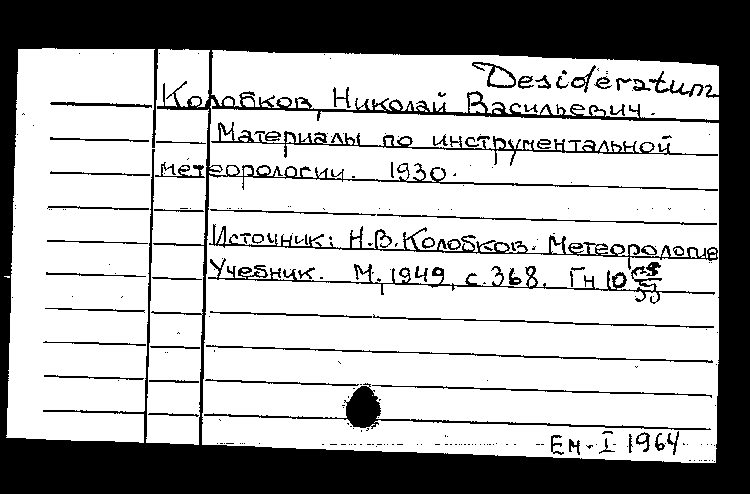 Desideratum
Колобков, Николай Васильевич.
Материалы по инструментальной
метеорологии. 1930.
Источник: Н.В.Колобков. Метеорология
Учебник. М., 1949, с. 368. Гн 10
53
Ен. I 1964